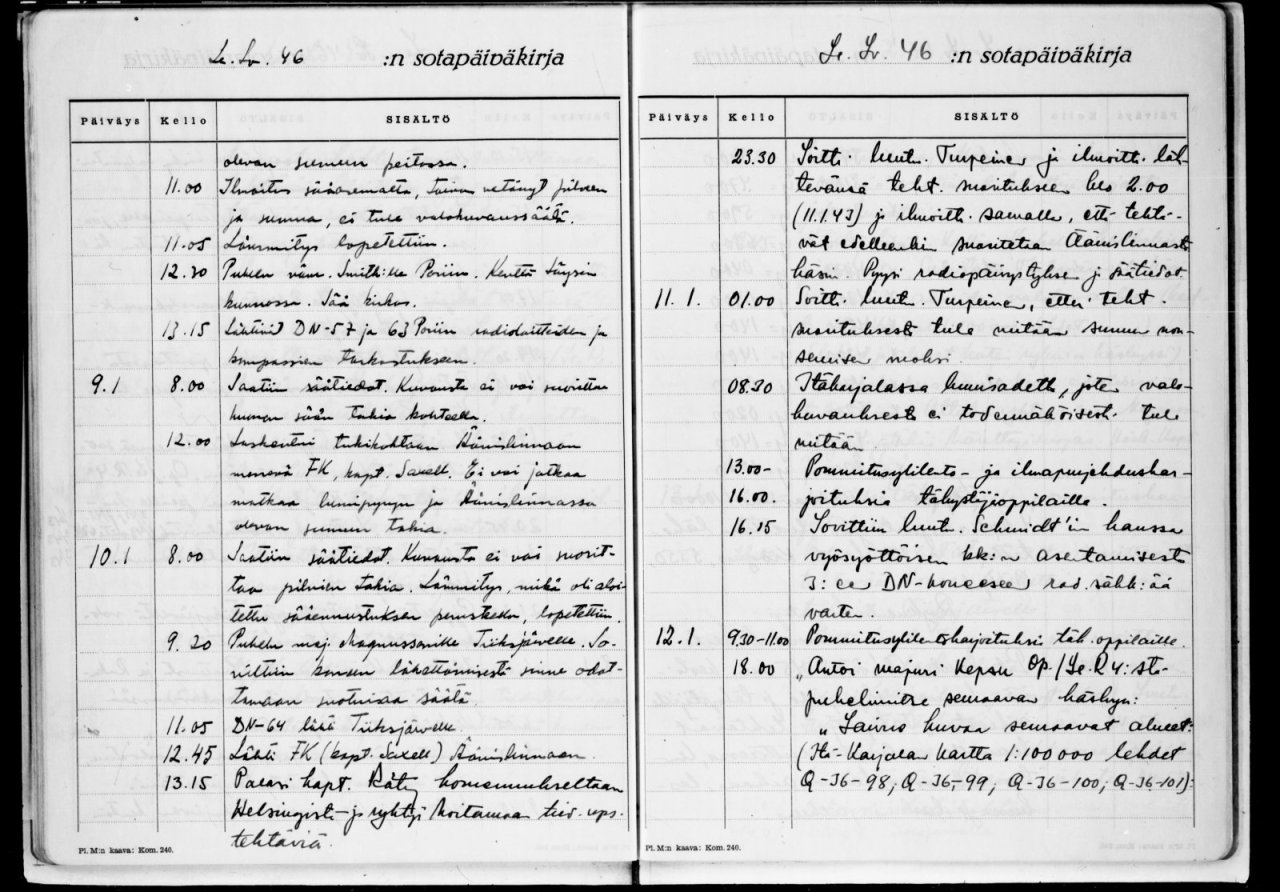 Le.Lv. 46 :n sotapäiväkirja
Päiväys Kello SISÄLTÖ
olevan sumun peitossa.
11.00 Ilmoitus sääasemalta, taivas vetänyt pilveen
ja sumua, ei tule valokuvaussäätä.
11.05 Lämmitys lopetettiin.
12.30 Puhelu vänr. Smith:lle Poriin. Kenttä täysin
kunnossa. Sää kirkas.
13.15 Lähtivät DN-57 ja 63 Poriin radiolaitteiden ja
kompassien tarkastukseen.
9.1 8.00 Saatiin säätiedot. Kuvausta ei voi suorittaa
huonon sään takia kohteella.
12.00 Laskeutui tukikohtaan Äänislinnaan
menossa FK, kapt. Saxell. Ei voi jatkaa
matkaa lumipyryn ja Äänislinnassa
olevan sumun takia.
10.1 8.00 Saatiin säätiedot. Kuvausta ei voi suorit-
taa pilvien takia. Lämmitys, mikä oli aloi-
tettu sääennustuksen perusteella, lopetettiin.
9.20 Puhelu maj. Magnussonille Tiiksjärvelle. So-
vittiin koneen lähettämisestä sinne odot-
tamaan suotuisaa säätä.
11.05 DN-64 Tiiksjärvelle.
12.45 Lähti FK (kapt. Saxell) Äänislinnaan.
13.15 Palasi kapt. Räty komennukseltaan
Helsingistä ja ryhtyi hoitamaan tied. ups.
tehtäviä.
Pl. M:n kaava: Kom. 240.
Le.Lv. 46 :n sotapäiväkirja
Päiväys Kello SISÄLTÖ
23.30 Soitti luutn. Turpeinen ja ilmoitti läh-
tevänsä teht. suoritukseen klo 2.00
(11.1.43) ja ilmoitti samalla, että tehtä-
vät edelleenkin suoritetaan Äänislinnasta
käsin. Pyysi radiopäivystyksen ja säätiedot.
11.1. 01.00 Soitti luutn. Turpeinen, ettei teht.
suorituksesta tule mitään sumun nou-
semisen vuoksi.
08.30 Itäkarjalassa lumisadetta, joten valo-
kuvauksesta ei todennäköisesti tule
mitään.
13.00- Pommitusylilento- ja ilmapurjehdushar-
16.00. joituksia tähystäjäoppilaille.
16.15 Sovittiin luutn. Schmidt'in kanssa
vyösyöttöisen kk:n asentamisesta
3:een DN-koneeseen rad.sähk:ää
varten.
12.1. 9.30-11.00 Pommitusylilentoharjoituksia täh.oppilaille.
18.00 „Antoi majuri Kepsu Op./Le.R4:stä
puhelimitse seuraavan käskyn:
„Laivue kuvaa seuraavat alueet:
(Itä-Karjalan kartta 1:100 000 lehdet
Q-36-98, Q-36-99, Q-36-100, Q-36-101):
Pl. M:n kaava: Kom. 240.